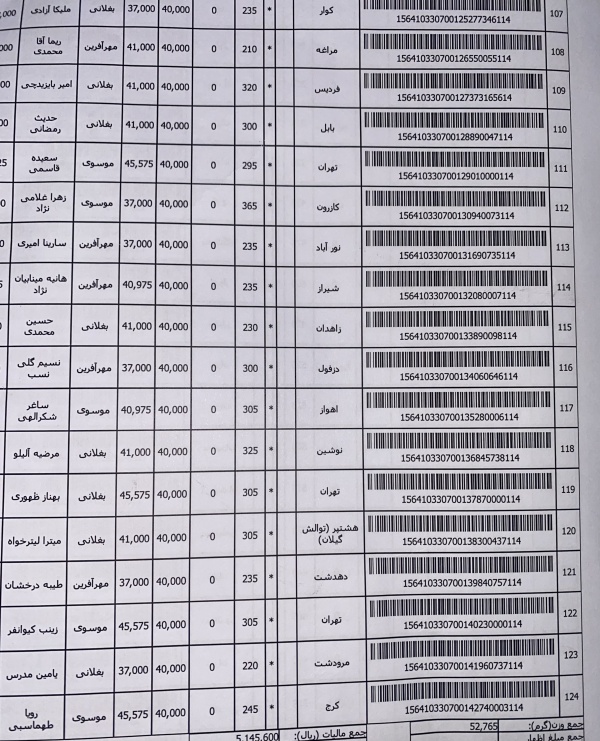 107 156410330700125277346114 کوار * 235 0 40,000 37,000 بغلانی ملیکا آزادی
108 156410330700126550055114 مراغه * 210 0 40,000 41,000 مهرآفرین ریما آقا محمدی
109 156410330700127373165614 فردیس * 320 0 40,000 41,000 بغلانی امیر بایزیدچی
110 156410330700128890047114 بابل * 300 0 40,000 41,000 بغلانی حدیث رمضانی
111 156410330700129010000114 تهران * 295 0 40,000 45,575 موسوی سعیده قاسمی
112 156410330700130940073114 کازرون * 365 0 40,000 37,000 موسوی زهرا غلامی نژاد
113 156410330700131690735114 نور آباد * 235 0 40,000 37,000 مهرآفرین سارینا امیری
114 156410330700132080007114 شیراز * 235 0 40,000 40,975 مهرآفرین هانیه مینابیان نژاد
115 156410330700133890098114 زاهدان * 230 0 40,000 41,000 بغلانی حسین محمدی
116 156410330700134060646114 دزفول * 300 0 40,000 37,000 مهرآفرین نسیم گلی نسب
117 156410330700135280006114 اهواز * 305 0 40,000 40,975 موسوی ساغر شکرالهی
118 156410330700136845738114 نوشین * 325 0 40,000 41,000 بغلانی مرضیه آلیلو
119 156410330700137870000114 تهران * 305 0 40,000 45,575 بغلانی بهناز ظهوری
120 156410330700138300437114 هشتپر (توالش گیلان) * 305 0 40,000 41,000 بغلانی میترا لیترخواه
121 156410330700139840757114 دهدشت * 235 0 40,000 37,000 مهرآفرین طیبه درخشان
122 156410330700140230000114 تهران * 305 0 40,000 45,575 موسوی زینب کیوانفر
123 156410330700141960737114 مرودشت * 220 0 40,000 37,000 بغلانی یامین مدرس
124 156410330700142740003114 کرج * 245 0 40,000 45,575 موسوی رویا طهماسبی
جمع وزن(گرم): 52,765 جمع مالیات (ریال): 5,145,600
جمع مبلغ اظهار